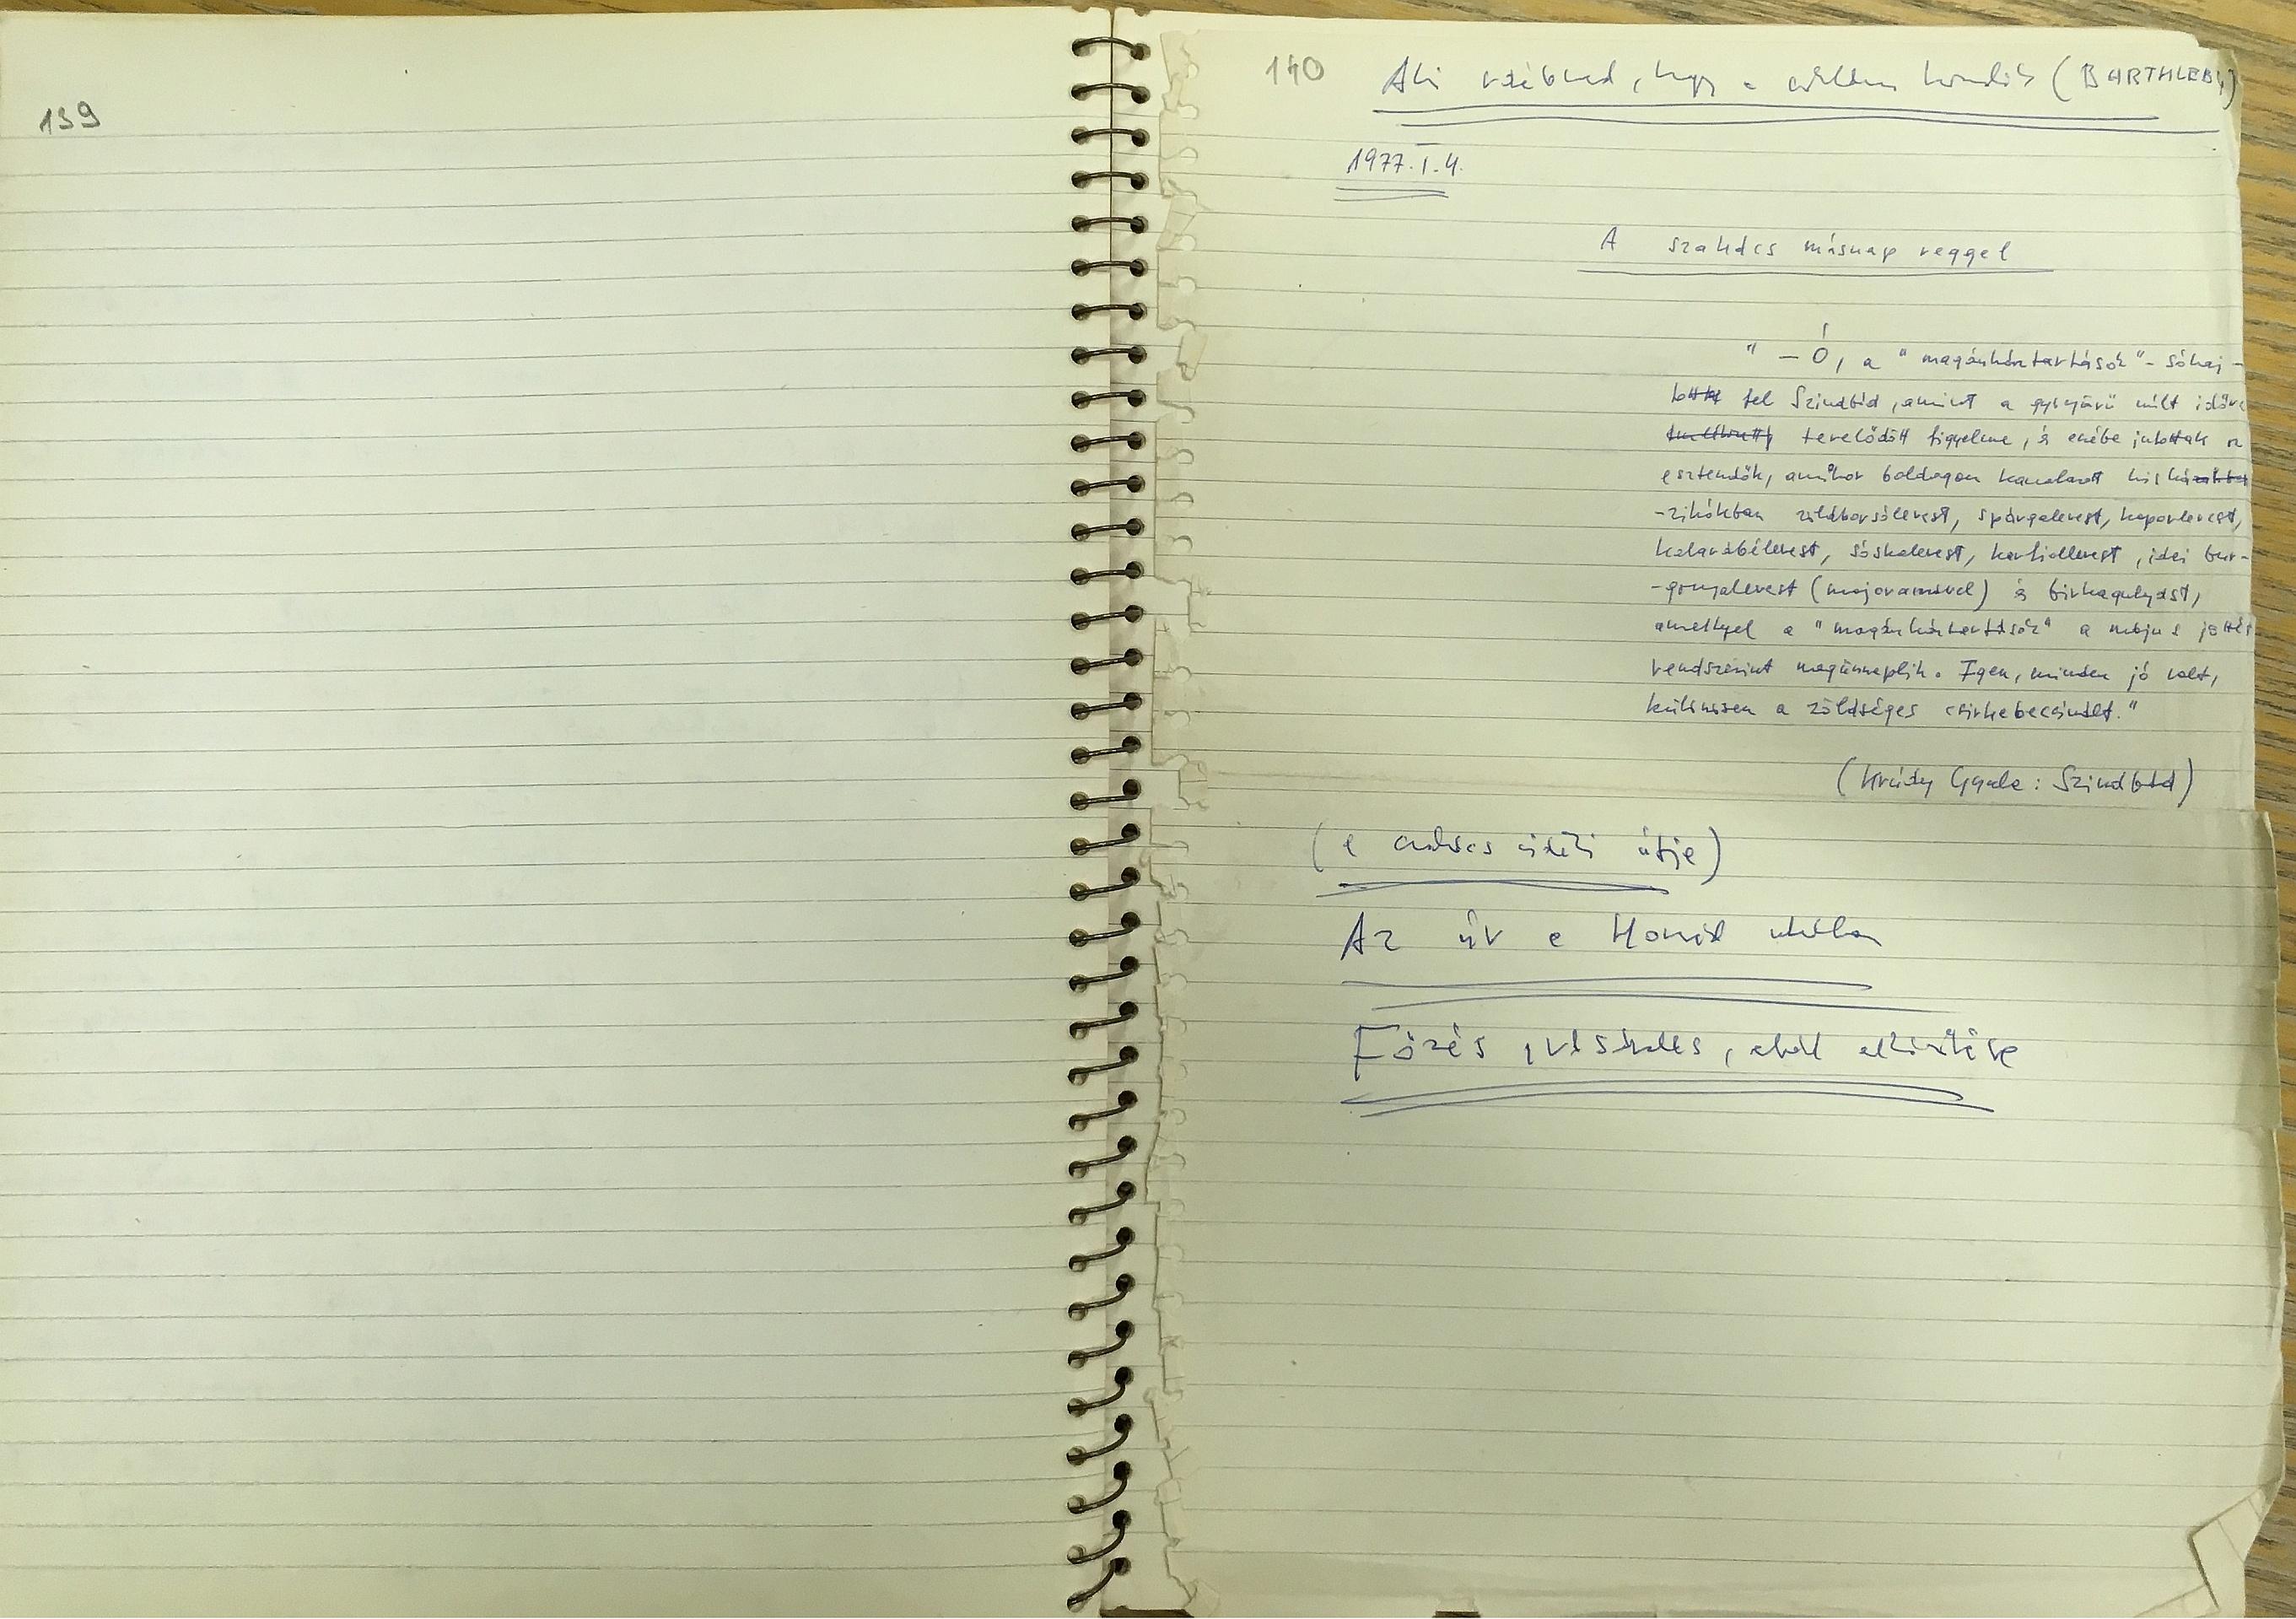 139
140
Aki rászokned, hogy a csillem kondás (BARTHLEBY)
1977. I. 4.
A szakács másnap reggel
" – Ó, a "magánháztartások" – sóhaj-
tott fel Szindbád, amint a gyönyörű múlt időre
terelődött figyelme, és eszébe jutottak az
esztendők, amikor boldogan kanalazott kis há
-zikókban zöldborsólevest, spárgalevest, kaporlevest,
kalarábélevest, sóskalevest, karfiollevest, idei bur-
-gonyalevest (majoránnával) és birkagulyást,
amellyel a "magánháztartások" a május jöttét
rendszerint megünneplik. Igen, minden jó volt,
különösen a zöldséges csirkebecsinált."
(Krúdy Gyula: Szindbád)
(a útja)
Az úr a
Főzés, vásárlás, elkészítése